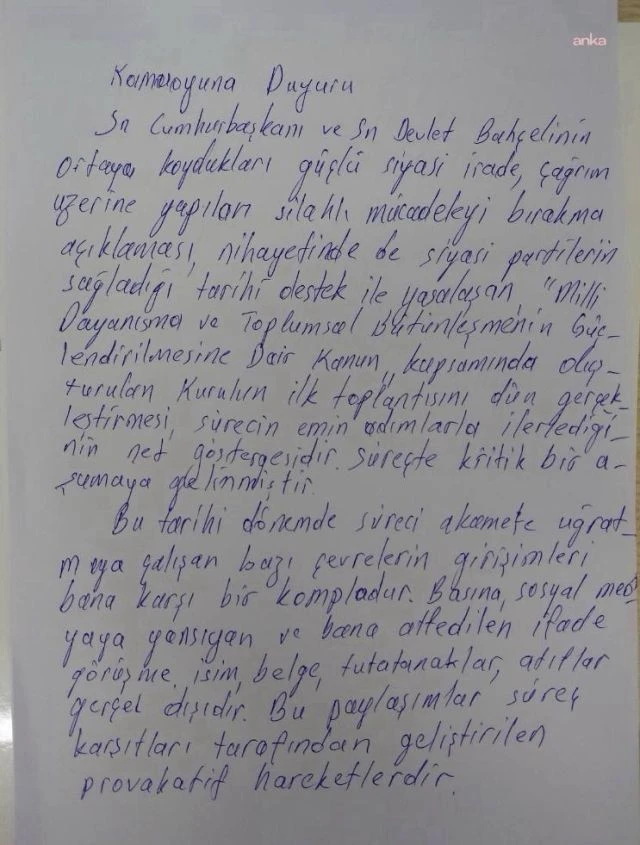 anka
Kamuoyuna Duyuru
Sn Cumhurbaşkanı ve Sn Devlet Bahçelinin
Ortaya koydukları güçlü siyasi irade, çağrım
üzerine yapılan silahlı mücadeleyi bırakma
açıklaması, nihayetinde de siyasi partilerin
sağladığı tarihi destek ile yasalaşan, "Milli
Dayanışma ve Toplumsal Bütünleşmenin Güç-
lendirilmesine Dair Kanun,, kapsamında oluş-
turulan Kurulun ilk toplantısını dün gerçek-
leştirmesi, sürecin emin adımlarla ilerlediği-
nin net göstergesidir. Süreçte kritik bir a-
şamaya gelinmiştir.
Bu tarihi dönemde süreci akamete uğrat-
maya çalışan bazı çevrelerin girişimleri
bana karşı bir kompladur. Basına, sosyal med-
yaya yansıyan ve bana atfedilen ifade
görüşme, isim, belge, tutatanaklar, atıflar
gerçek dışıdır. Bu paylaşımlar süreç
karşıtları tarafından geliştirilen
provakatif hareketlerdir.